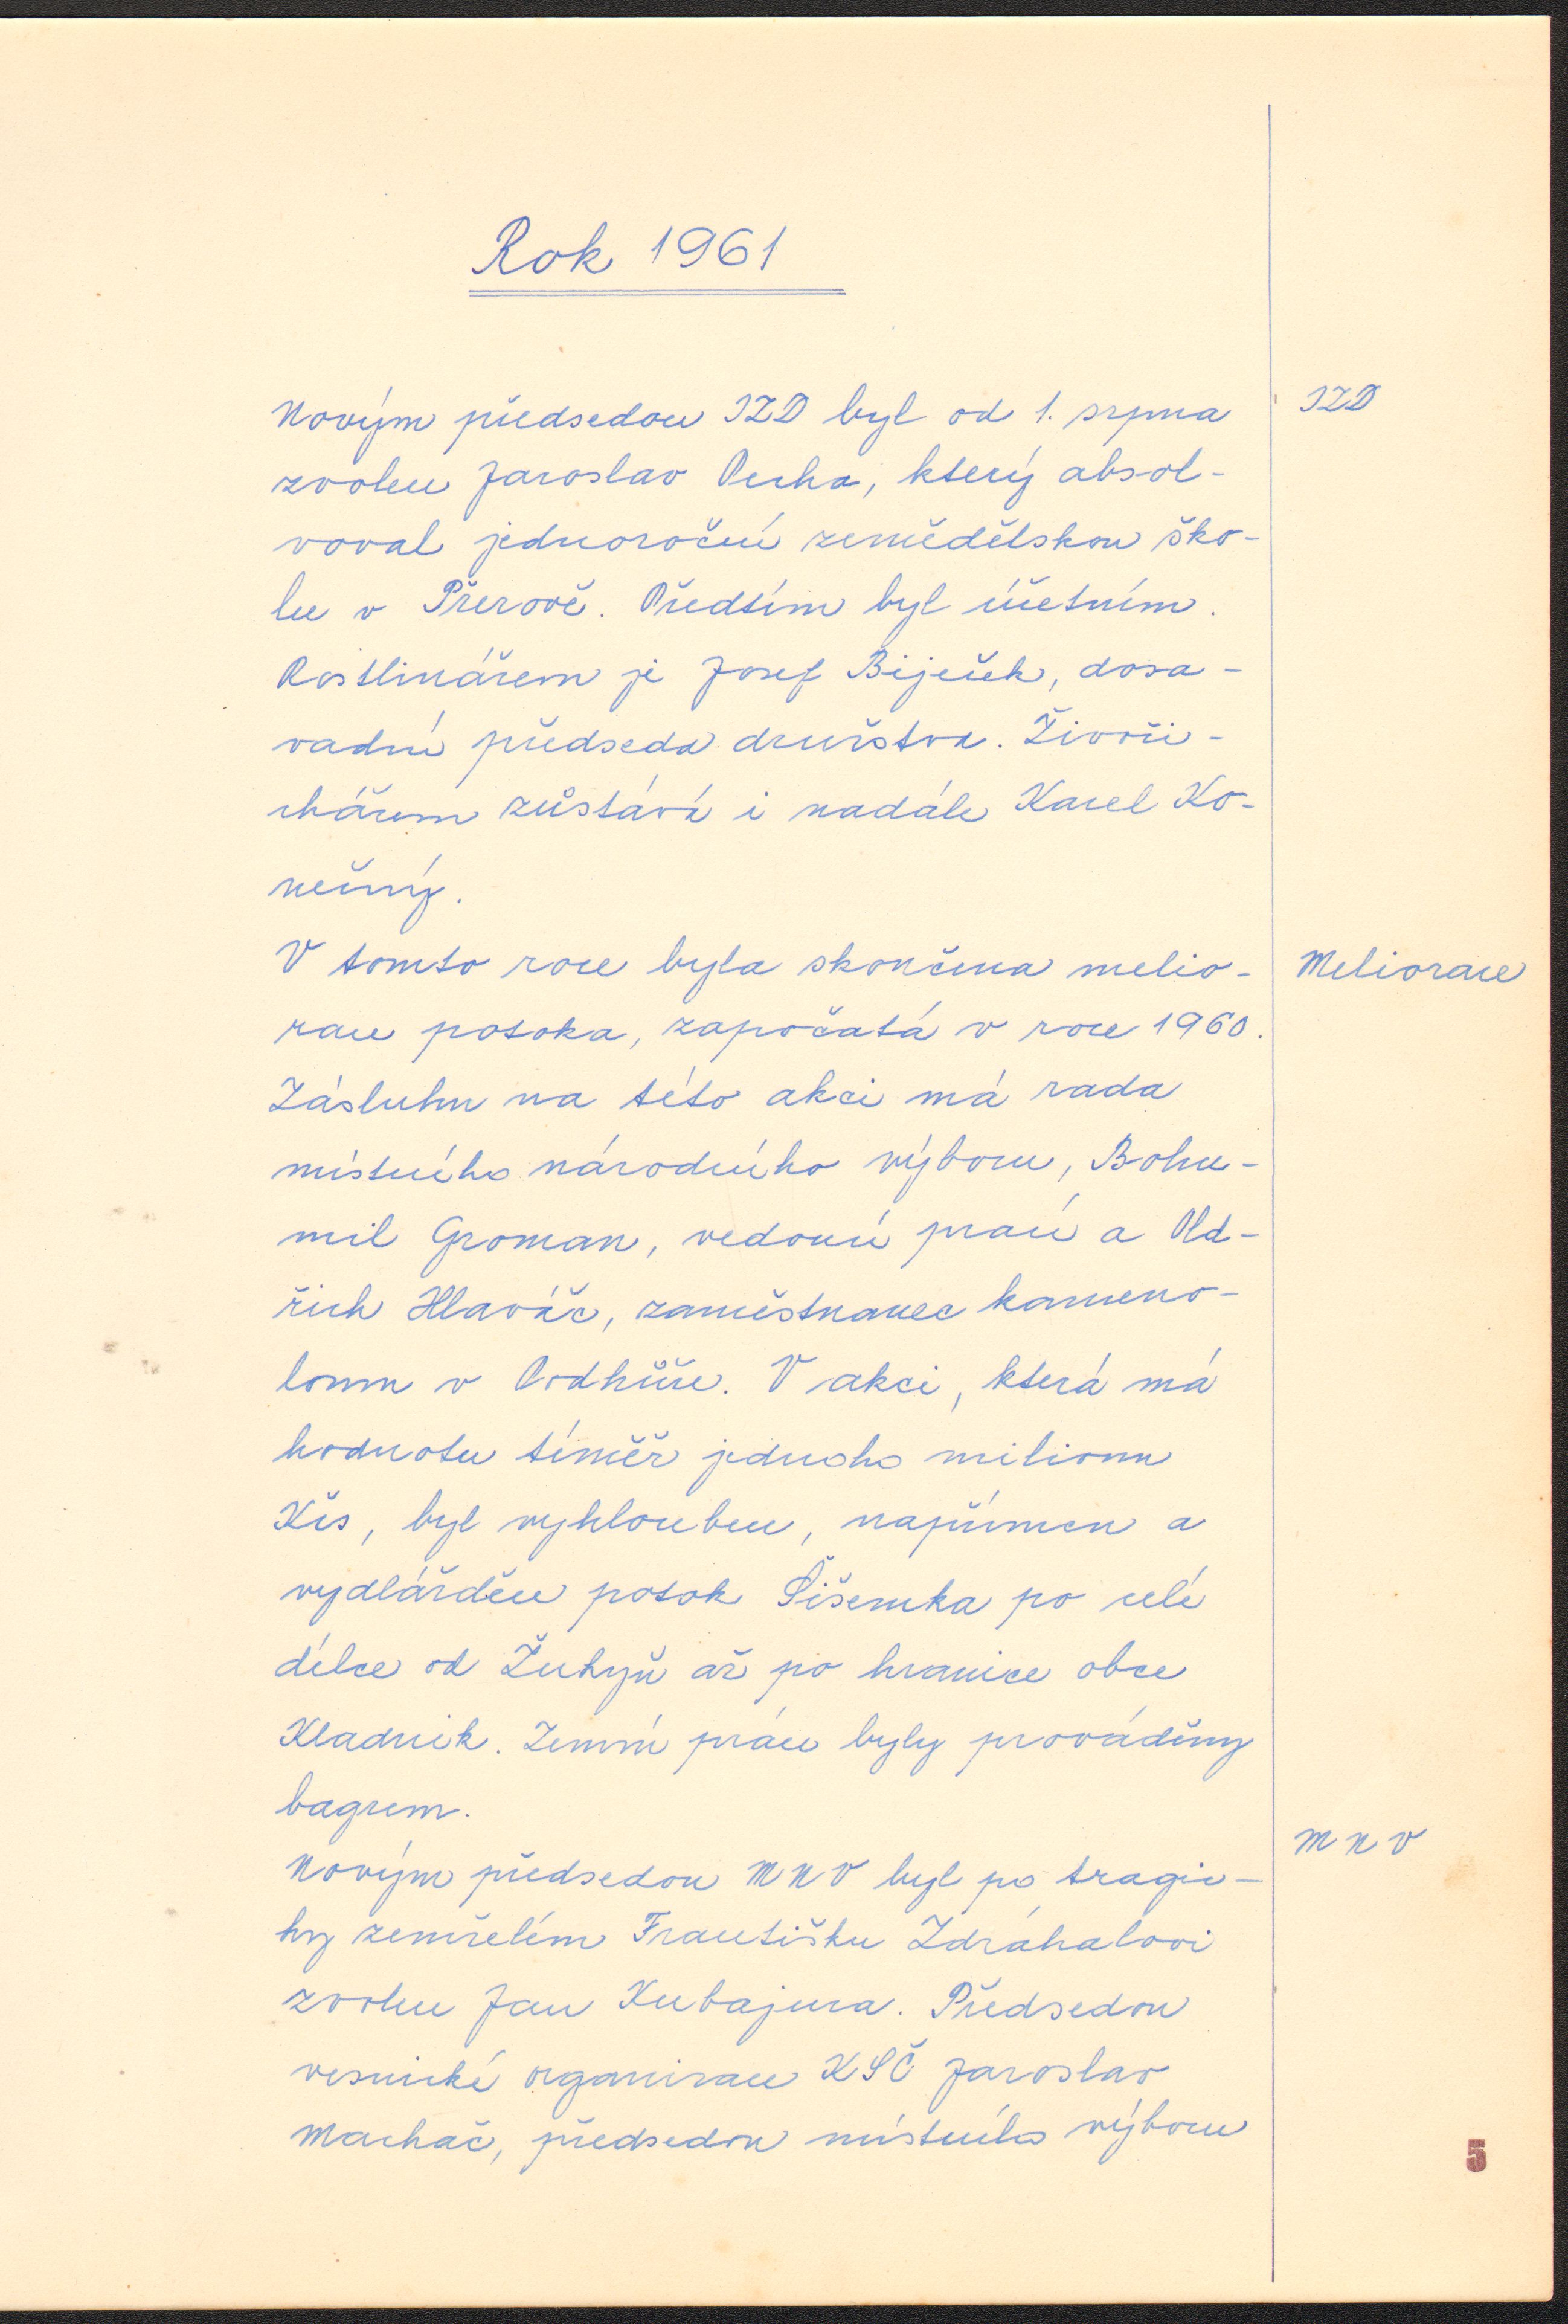 Rok 1961
Novým předsedou JZD byl od 1. srpna
JZD
zvolen Jaroslav Pecha, který absol-
voval jednoroční zemědělskou ško-
lu v Přerově. Předtím byl účetním.
Rostlinářem je Josef Biječek, dosa-
vadní předseda družstva. Živoči-
chářem zůstává i nadále Karel Ko-
nečný.
V tomto roce byla skončena melio-
Meliorace
race potoka, započatá v roce 1960.
Zásluhu na této akci má rada
místního národního výboru, Bohu-
mil Groman, vedoucí prací a Old-
řich Hlaváč, zaměstnanec kameno-
lomu v Podhůře. V akci, která má
hodnotu téměř jednoho milionu
Kčs, byl vyhlouben, napřímen a
vydlážděn potok Šišemka po celé
délce od Žuhyň až po hranice obce
Kladnik. Zemní práce byly prováděny
bagrem.
MNV
Novým předsedou MNV byl po tragic-
ky zemřelém Františku Zdráhalovi
zvolen Jan Kubajura. Předsedou
vesnické organisace KSČ Jaroslav
Machač, předsedou místního výboru
5